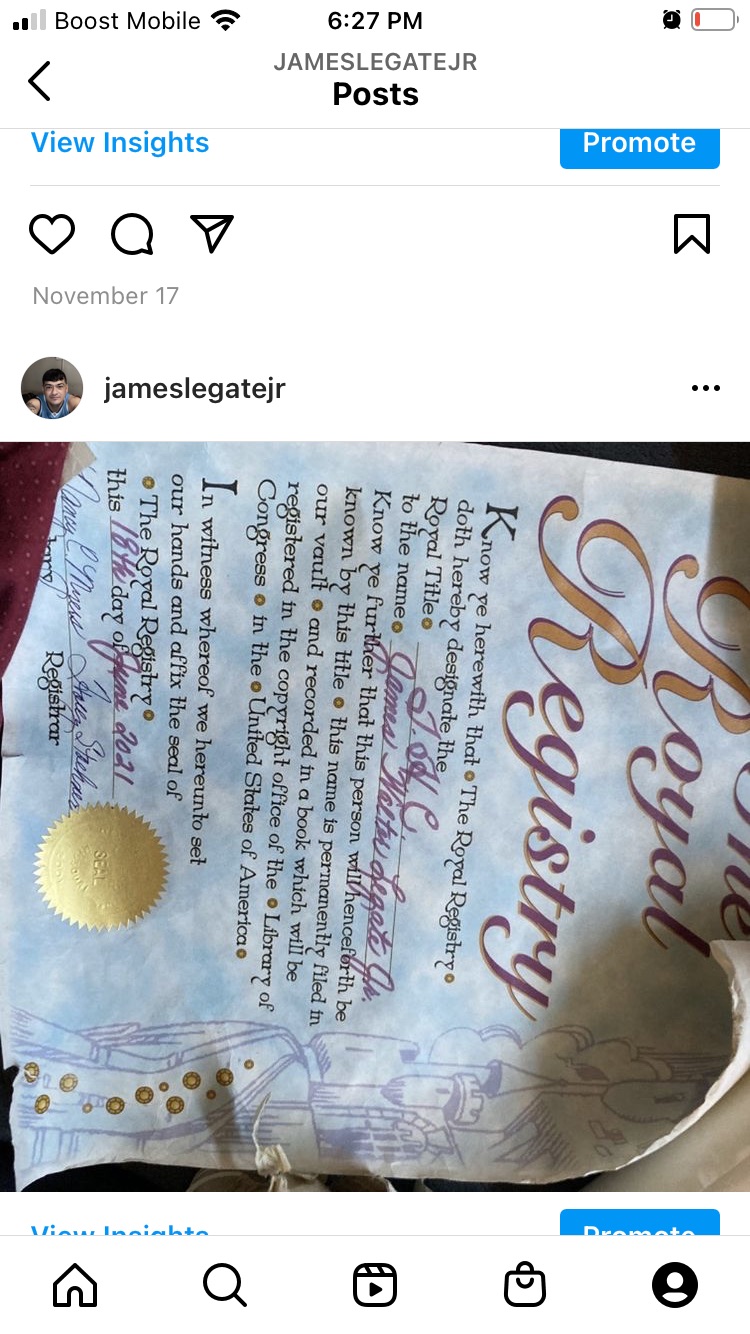 Boost Mobile 6:27 PM
JAMESLEGATEJR
Posts
View Insights Promote
November 17
jameslegatejr
Royal
Registry
Know ye herewith that • The Royal Registry •
doth hereby designate the
Royal Title •
to the name • James Legate Jr.
Know ye further that this person will henceforth be
known by this title • this name is permanently filed in
our vault • and recorded in a book which will be
registered in the copyright office of the • Library of
Congress • in the • United States of America •
In witness whereof we hereunto set
our hands and affix the seal of
• The Royal Registry •
this 18th day of June 2021
Nancy E Myers
Registrar
SEAL
View Insights Promote